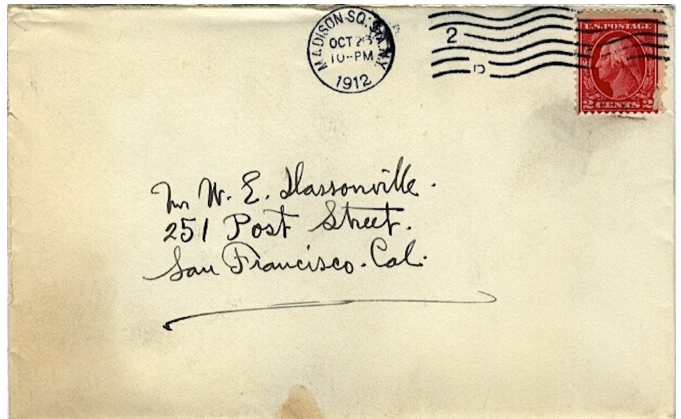 MADISON-SQ. STA. N.Y.
OCT 23
10-PM
1912
2
D
U.S. POSTAGE
2 CENTS 2
Mr W. E. Dassonville.
251 Post Street.
San Francisco. Cal.